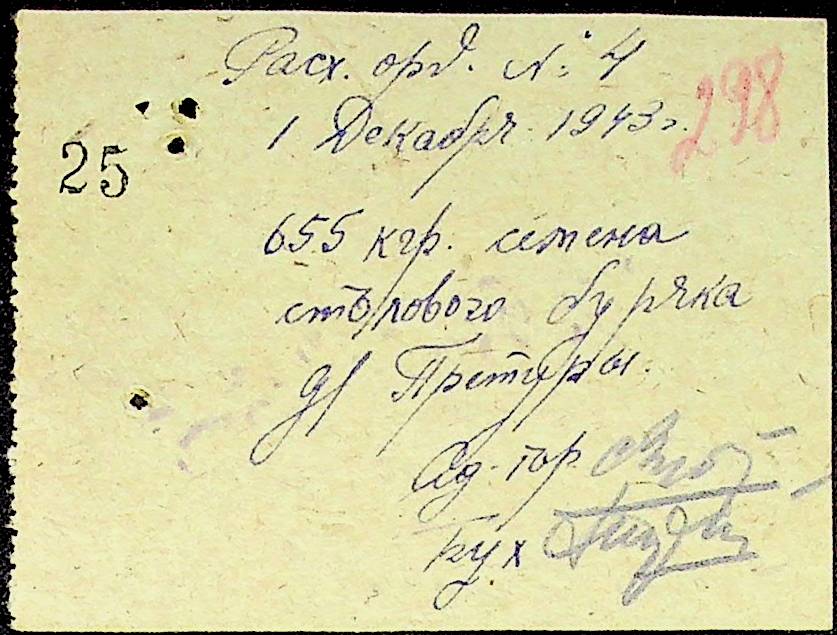 Расх. орд. №: 4
298
1 Декабря 1943 г.
25
655 кгр. семена
столового буряка
д/ Претуры.
Ад. гор.
Бух